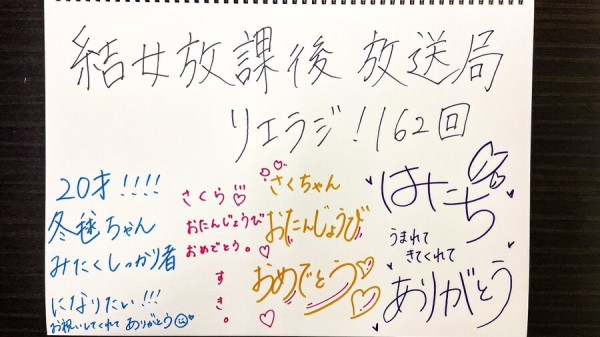 結女放課後放送局
リエラジ！162回
20才！！！！
冬毬ちゃん
みたくしっかり者
になりたい!!!
お祝いしてくれてありがとう
さくら
おたんじょうび
おめでとう。
すき。
さくちゃん
おたんじょうび
おめでとう
はたち
うまれて
きてくれて
ありがとう